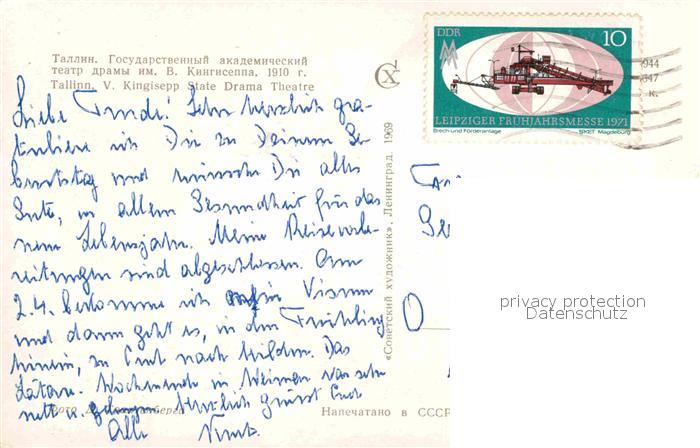 Таллин. Государственный академический
театр драмы им. В. Кингисеппа. 1910 г.
Tallinn. V. Kingisepp State Drama Theatre
DDR
10
LEIPZIGER FRÜHJAHRSMESSE 1971
Brech- und Förderanlage SKET Magdeburg
Liebe Trude! Sehr herzlich gra-
tuliere ich Dir zu Deinem Ge-
burtstag und wünsche Dir alles
Gute, vor allem Gesundheit für das
neue Lebensjahr. Meine Reisevorbe-
reitungen sind abgeschlossen. Am
2.4. bekomme ich mein Visum
und dann geht es, in den Frühling
hinein, zu Euch nach Hilden. Das
Wochenende in Weimar war sehr
nett u. herzlich grüßt Euch
Alle
«Советский художник», Ленинград. 1969
Напечатано в СССР
privacy protection
Datenschutz